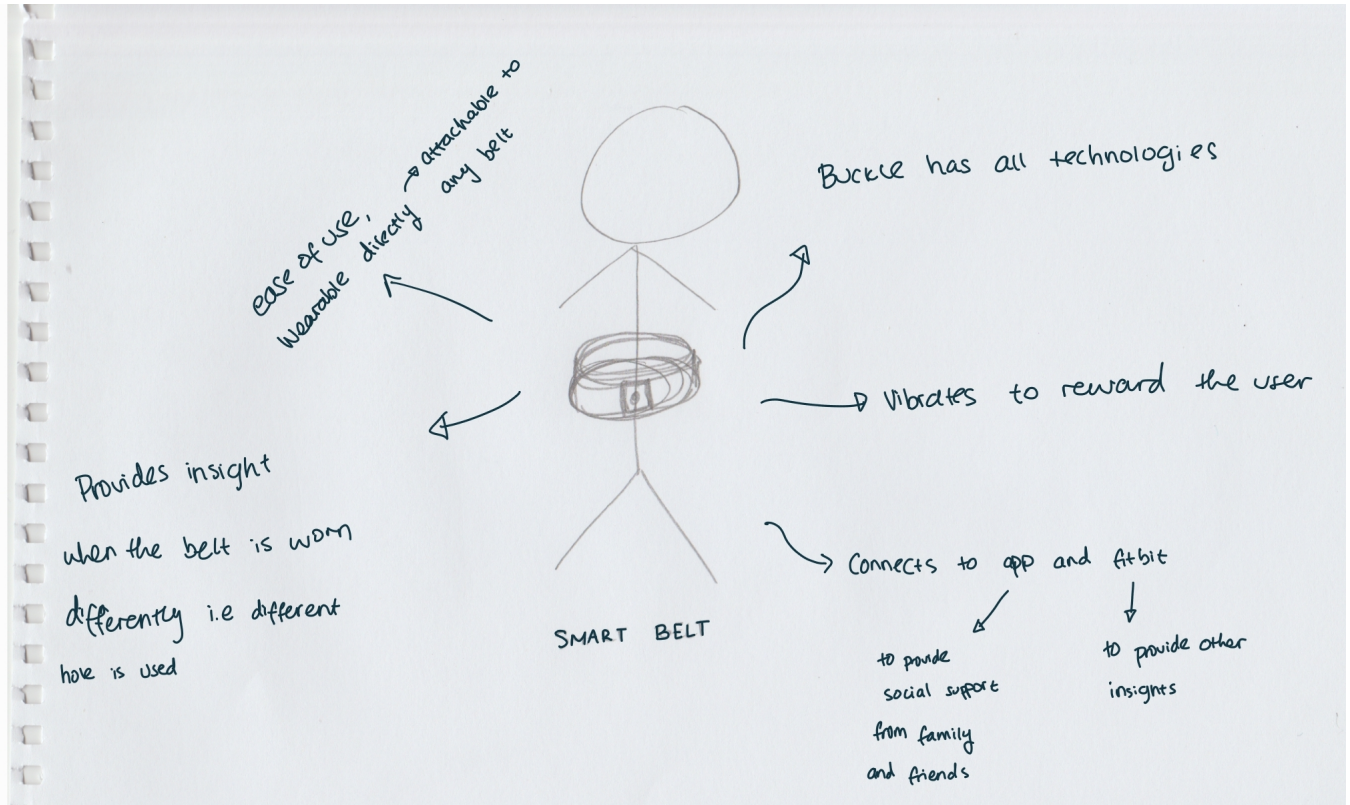 ease of use,
Wearable directly → attachable to
any belt
Buckle has all technologies
Vibrates to reward the user
Provides insight
when the belt is worn
differently i.e different
hole is used
Connects to app and fitbit
to provide
social support
from family
and friends
to provide other
insights
SMART BELT